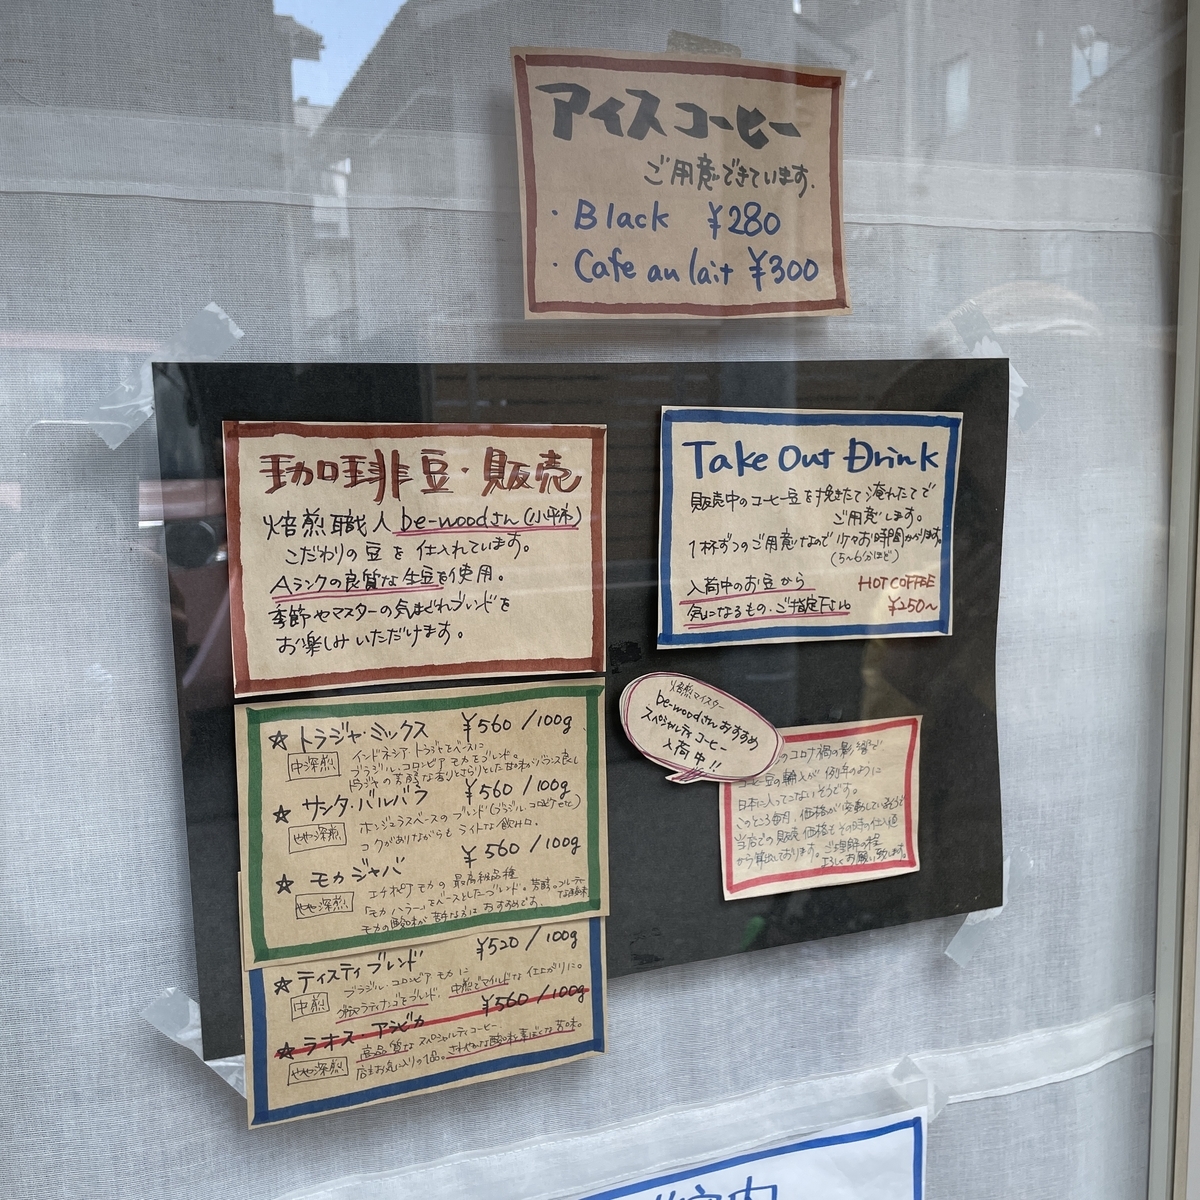 アイスコーヒー
ご用意できています.
・Black ¥280
・Cafe au lait ¥300
珈琲豆・販売
焙煎職人be-woodさん(小平市)
こだわりの豆を仕入れています。
Aランクの良質な生豆を使用。
季節やマスターの気まぐれブレンドを
お楽しみいただけます。
☆トラジャ・ミックス ¥560/100g
中深煎 インドネシア トラジャをベースに
ブラジル・コロンビア モカをブレンド。
トラジャの芳醇な香りとさらりとした甘味がバランス良し
★サンタ・バルバラ ¥560/100g
やや深煎 ホンジュラスベースのブレンド(ブラジル・コロンビアetc)
コクがありながらも ライトな飲み口.
★モカジャバ ¥560/100g
やや深煎 エチオピア モカの 最高級品種
「モカ ハラー」をベースとしたブレンド。芳醇。フルーティーな酸味
モカの酸味が苦手な方に おすすめです。
★テイスティブレンド ¥520/100g
中煎 ブラジル・コロンビア モカに
ブレンド. 中煎でマイルドな 仕上がりに。
☆ラオス アラビカ ¥560/100g
やや深煎 高品質な スペシャルティコーヒー.
店主お気に入りの1品。さわやかな酸味と
Take Out Drink
販売中のコーヒー豆を挽きたて淹れたてで
ご用意します。
1杯ずつのご用意なので 少々お時間かかります。
(5〜6分ほど)
入荷中のお豆から
気になるもの・ご指定下さい。
HOT COFFEE
¥250〜
焙煎マイスター
be-woodさんおすすめ
スペシャルティ コーヒー
入荷中!!
のコロナ禍の影響で
コーヒー豆の輸入が 例年のように
日本に入ってこないそうです。
このところ毎月、価格が変動しているそうで
当店での販売価格もその時の仕入値
から算出しております。ご理解の程
よろしくお願い致します。
案内